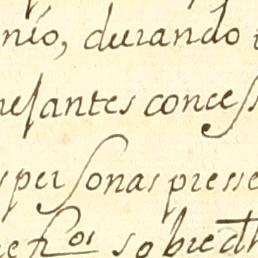 nío, durando
nesantes conces
s personas presse
nefros sobredh